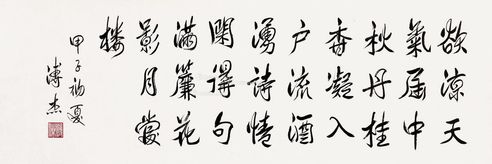 欲涼天
氣屆中
秋丹桂
香凝入
户流酒
湧詩情
閑得句
滿簾花
影月當
樓
甲子初夏
溥杰